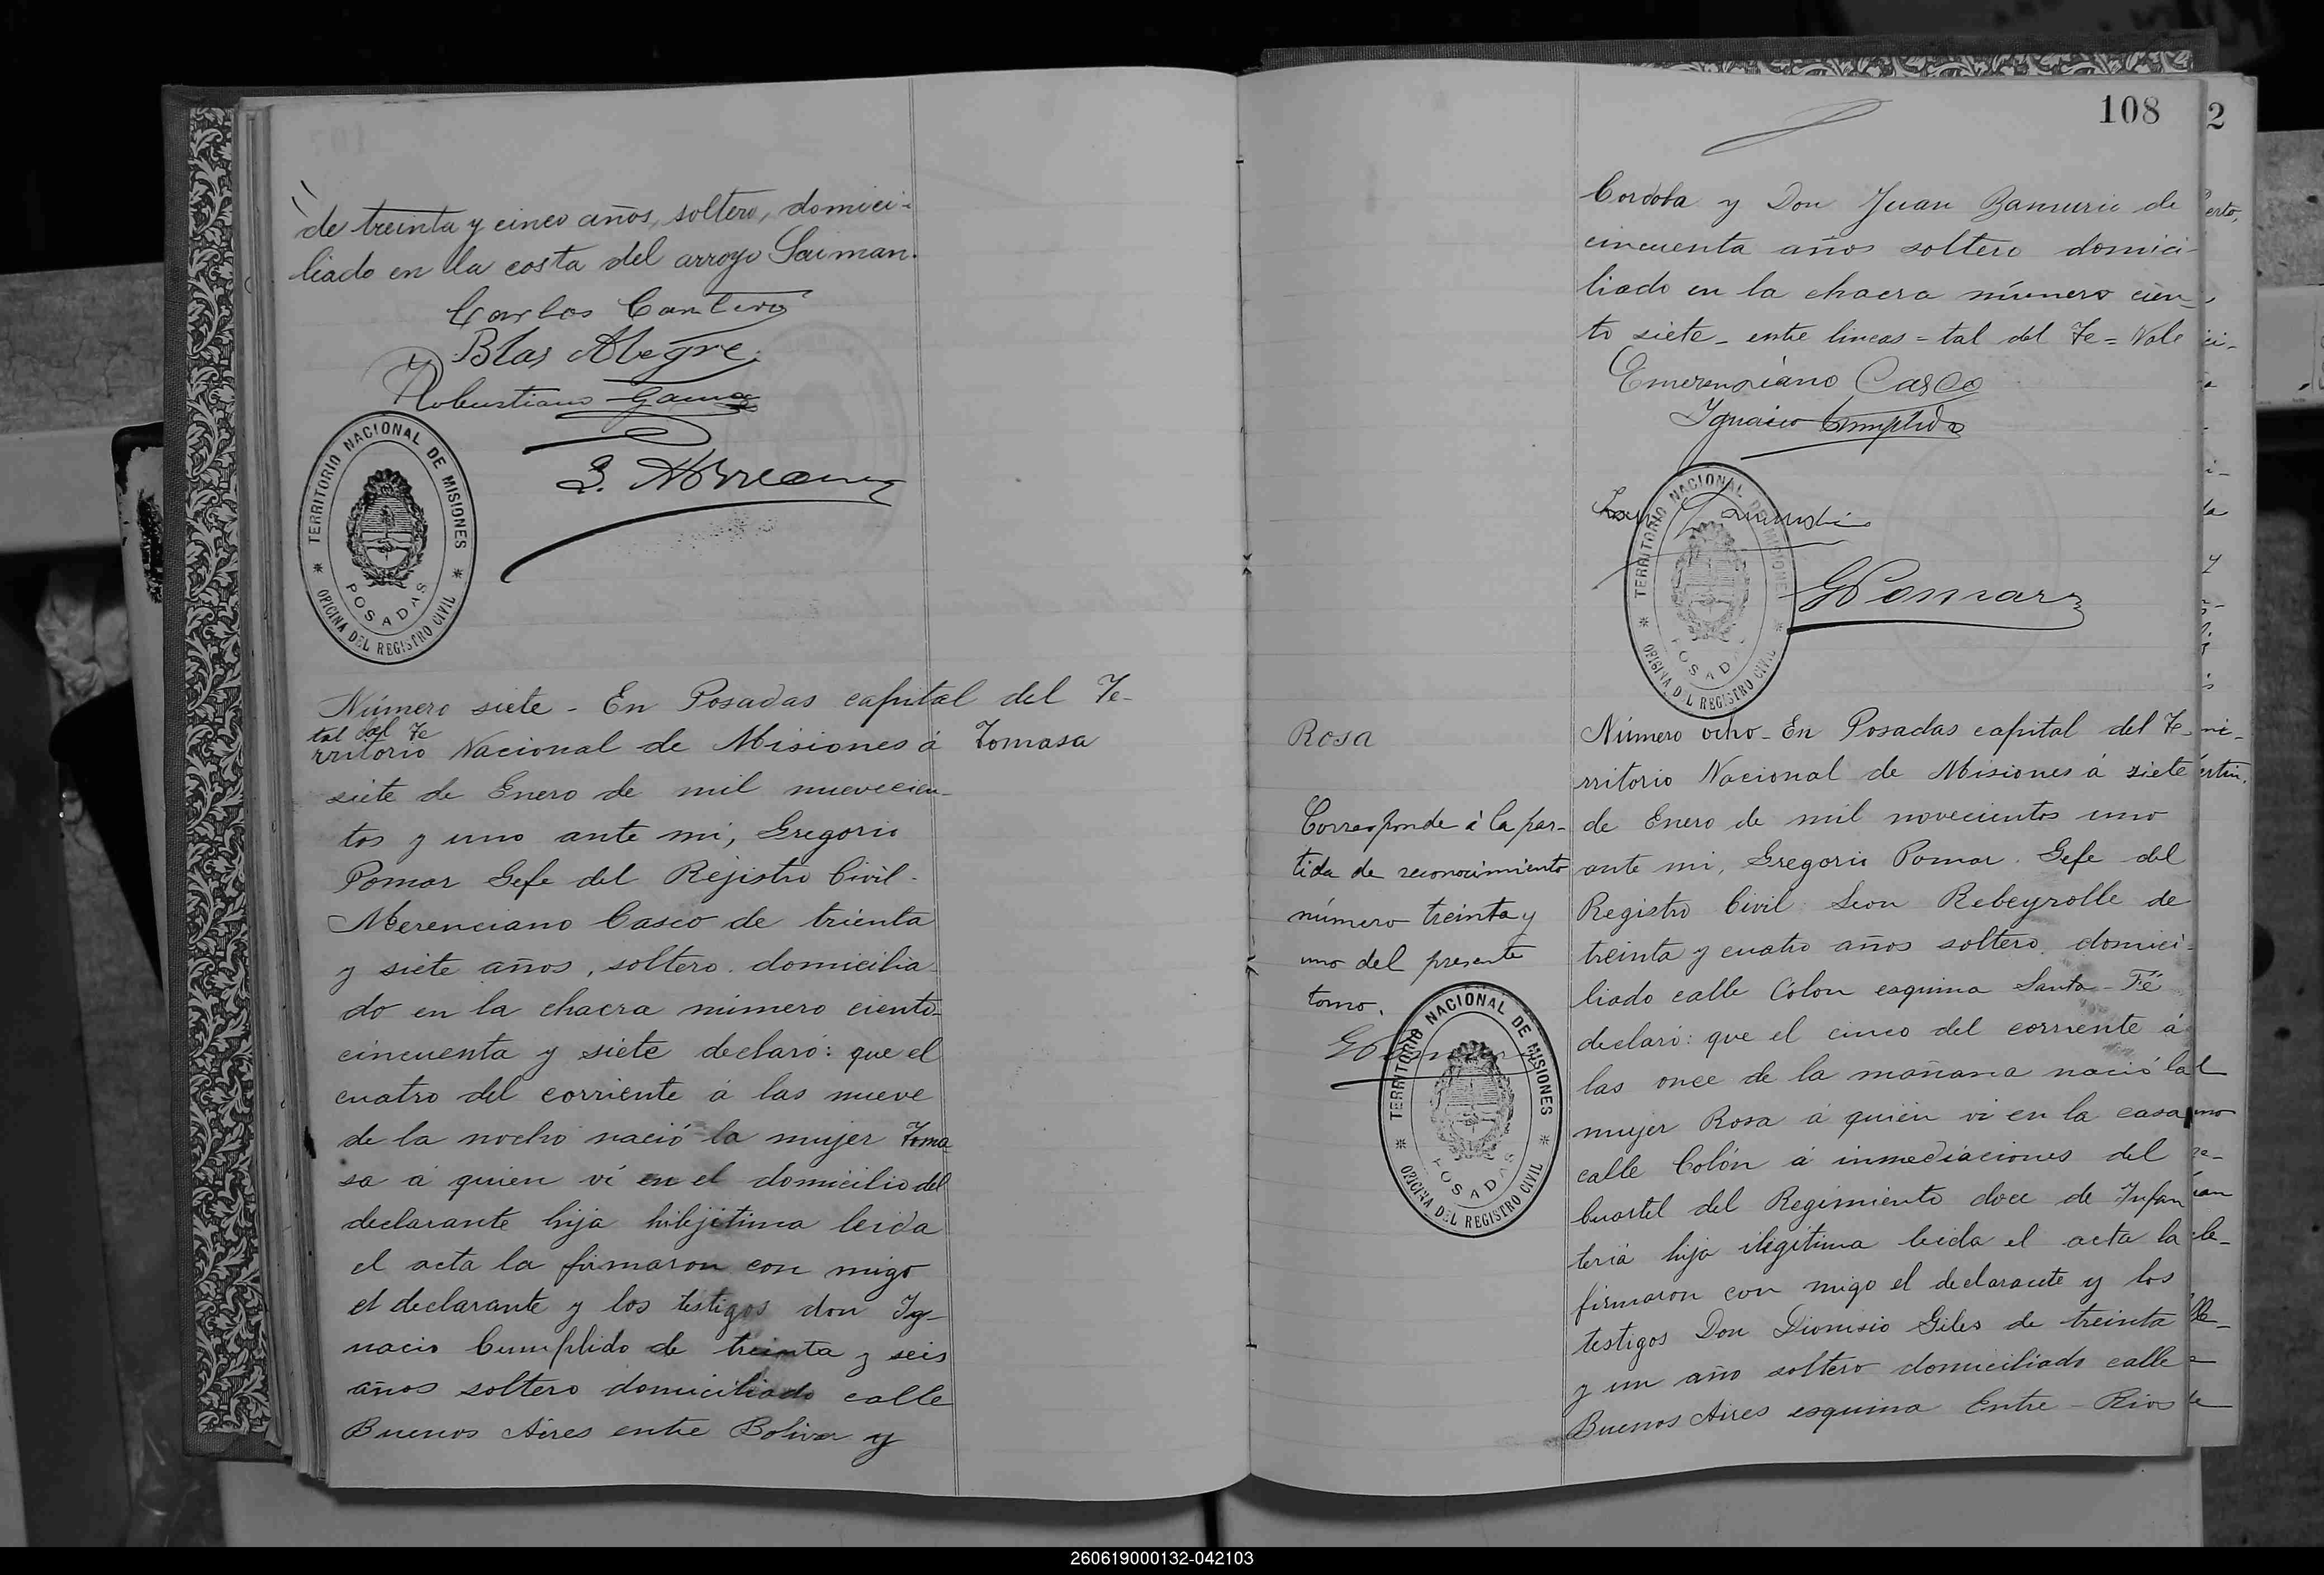 de treinta y cinco años, soltero, domici-
liado en la costa del arroyo Saiman.
Carlos Cantero
Blas Alegre
Robustiano Gauna
TERRITORIO NACIONAL DE MISIONES
POSADAS
OFICINA DEL REGISTRO CIVIL
Número siete - En Posadas capital del Te-
tal del Te
rritorio Nacional de Misiones á
Tomasa
siete de Enero de mil nuevecien-
tos y uno ante mi, Gregorio
Pomar Gefe del Rejistro Civil -
Merenciano Casco de trienta
y siete años, soltero. domicilia
do en la chacra número ciento
cincuenta y siete declaró: que el
cuatro del corriente á las nueve
de la noche nació la mujer Toma
sa á quien ví en el domicilio del
declarante hija hilejitima leida
el acta la firmaron con migo
el declarante y los testigos don Ig-
nacio Cumplido de treinta y seis
años soltero domiciliado calle
Buenos Aires entre Bolivar y
108
Cordoba y Don Juan de
cincuenta años soltero domici-
liado en la chacra número cien-
to siete - entre lineas = tal del Te = Vale
Emerenciano Casco
Ignacio Cumplido
TERRITORIO NACIONAL DE MISIONES
POSADAS
OFICINA DEL REGISTRO CIVIL
GPomar
Rosa
Corresponde á la par-
tida de reconocimiento
número treinta y
uno del presente
tomo.
GPomar
TERRITORIO NACIONAL DE MISIONES
POSADAS
OFICINA DEL REGISTRO CIVIL
Número ocho - En Posadas capital del Te-
rritorio Nacional de Misiones á siete
de Enero de mil novecientos uno
ante mi, Gregorio Pomar. Gefe del
Registro Civil Leon Rebeyrolle de
treinta y cuatro años soltero domici-
liado calle Colon esquina Santa-Fé
declaró: que el cinco del corriente á
las once de la mañana nació la
mujer Rosa á quien ví en la casa
calle Colón á inmediaciones del
Cuartel del Regimiento doce de Infan
teria hija ilegítima leida el acta la
firmaron con migo el declarante y los
testigos Don Dionisio Giles de treinta
y un año soltero domiciliado calle
Buenos Aires esquina Entre-Rios
260619000132-042103